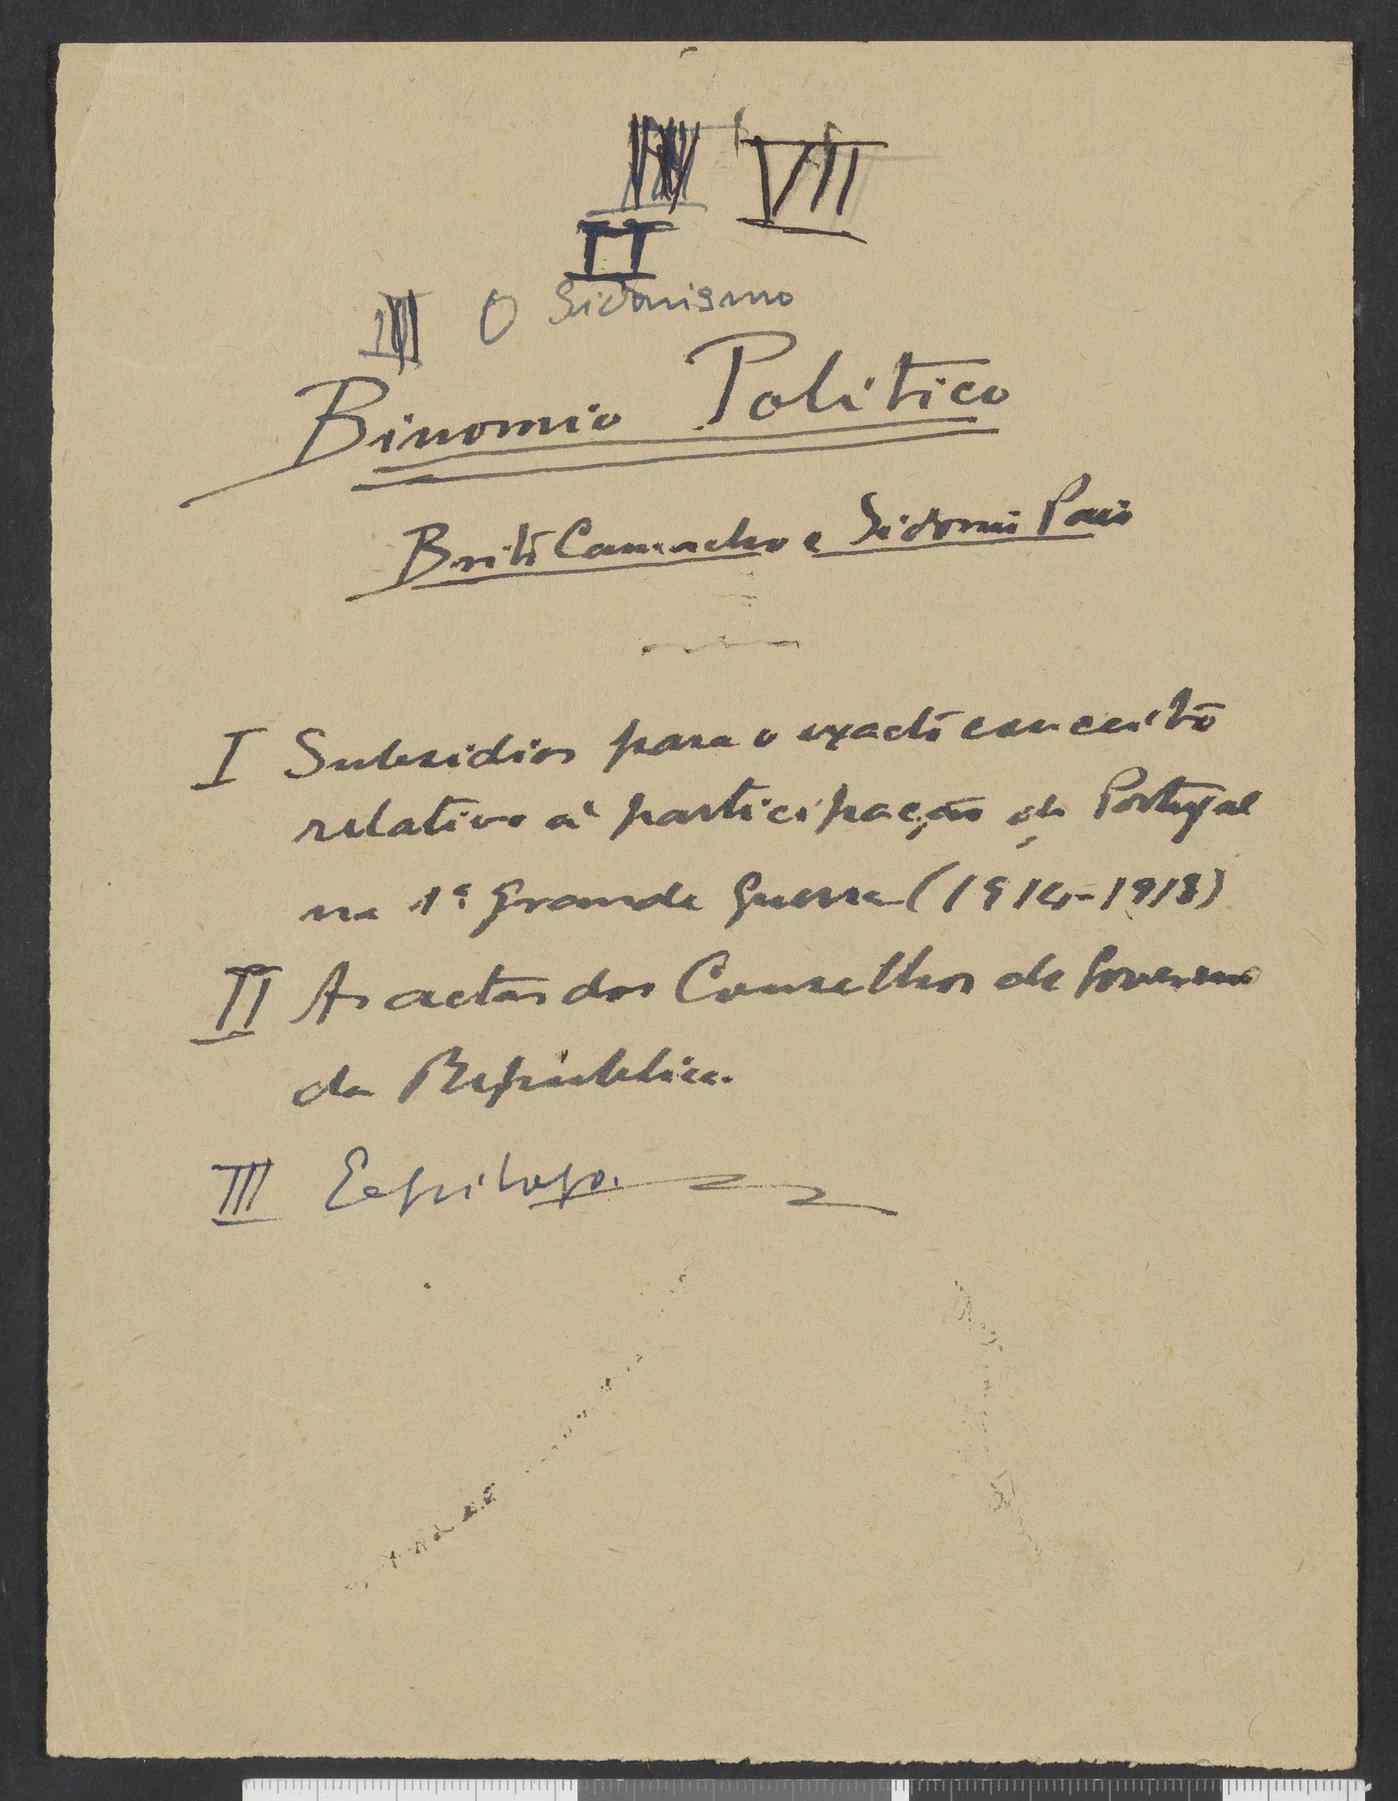 VII
II
III O Sidonismo
Binomio Politico
Brito Camacho e Sidonio Pais
I Subsidios para o exacto conceito
relativo à participação de Portugal
na 1ª Grande Guerra (1914-1918)
II As actas dos Conselhos de Governo
da Republica.
III Epilogo.